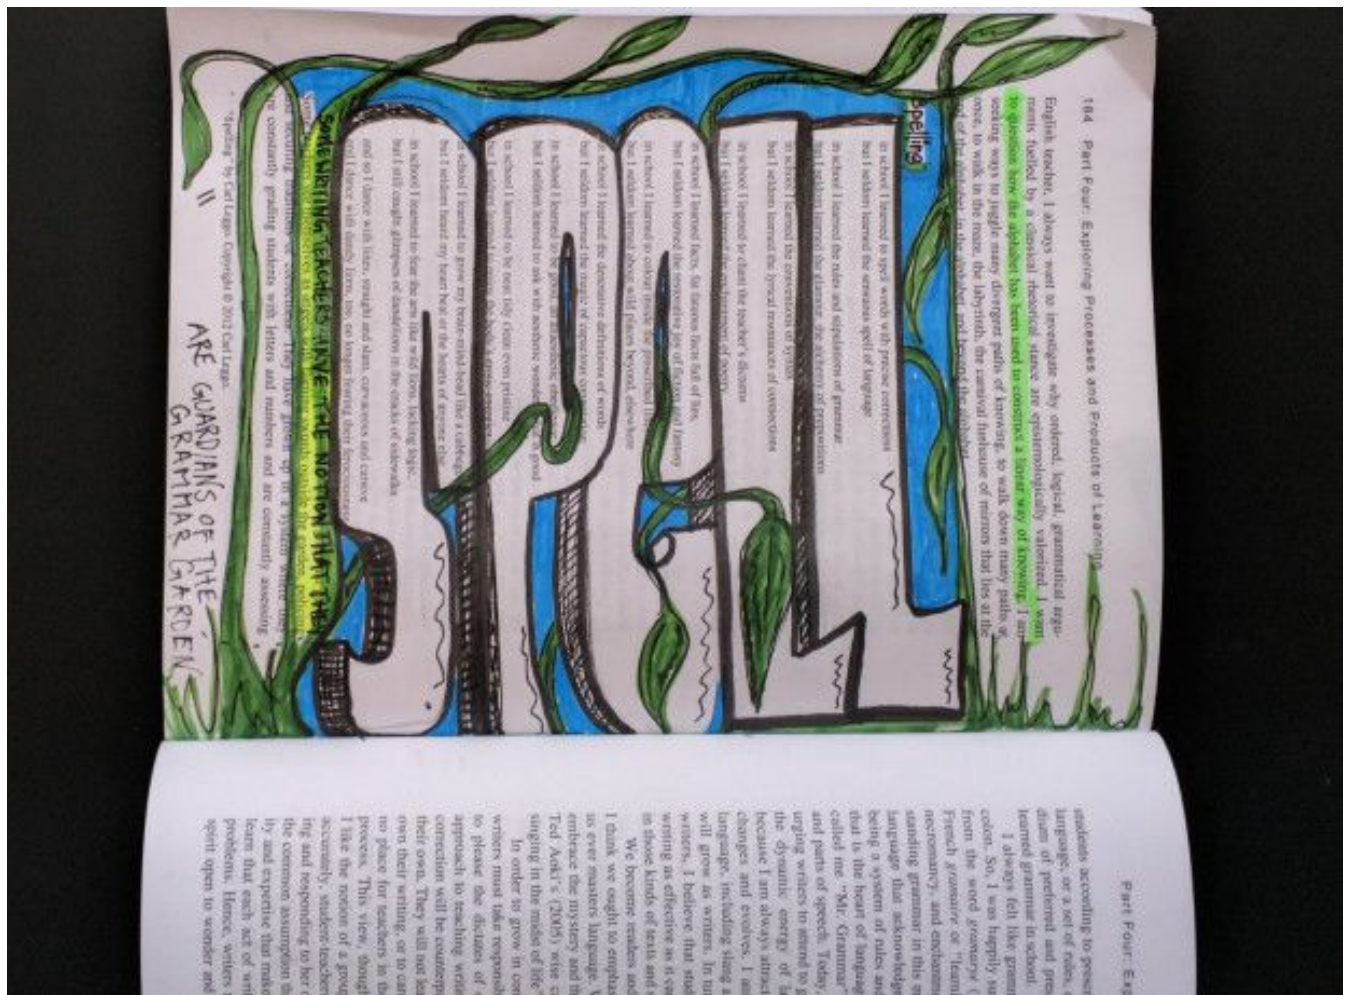 184 Part Four: Exploring Processes and Products of Learning
English teacher, I always want to investigate why ordered, logical, grammatical argu-
ments fuelled by a classical rhetorical stance are epistemologically valorized. I want
to question how the alphabet has been used to construct a linear way of knowing. I am
seeking ways to juggle many divergent paths of knowing, to walk down many paths at
once, to walk in the maze, the labyrinth, the carnival funhouse of mirrors that lies at the
end of the alphabet, in the alphabet, and beyond the alphabet.
Spelling
in school I learned to spell words with precise correctness
but seldom learned the sensuous spell of language
in school I learned the rules and stipulations of grammar
but seldom learned the glamour, the alchemy of prepositions
in school I learned the conventions of syntax
but I seldom learned the lyrical resonances of connections
in school I learned to chant the teacher's dictums
but I seldom learned the
in school I learned facts, far famous facts full of lies,
but I seldom learned the restorative joy of fiction and fantasy
in school I learned to colour inside the prescribed lines
but I seldom learned about wild places beyond, elsewhere
in school I learned the denotative definitions of words
but I seldom learned the magic of capacious
in school I learned to be good, an anaesthetic
but I seldom learned to ask with aesthetic wonder, is good
in school I learned to be neat tidy clean even pristine
but I seldom learned to
in school I learned to grow my brain-mind-head like a cabbage
but I seldom heard my heart beat or the hearts of anyone else
in school I learned to fear the arts like wild lions, lacking logic,
but I still caught glimpses of dandelions in the cracks of sidewalks
and so I dance with letters, straight and slim, curvaceous and cursive
and I dance with dandy lions, too, no longer fearing their ferociousness
SOME WRITING TEACHERS HAVE THE NOTION THAT THEY
are constantly grading students with letters and numbers and are constantly assessing
"Spelling" by Carl Leggo. Copyright © 2012 Carl Leggo.
ARE GUARDIANS OF THE
GRAMMAR GARDEN"
Part Four: Ex
students according to
language, or a set of rules,
dium of preferred and
learned grammar in school.
I always felt like
colon. So, I was happily
from the word gramarye (
French grimoire or "learni
necromancy, and
standing grammar in this
language that acknowledg
being a system of rules and
that is the heart of languag
called me "Mr. Grammar"
and parts of speech. Today,
urging writers to attend to
the dynamic energy of
because I am always attract
changes and evolves. I am
language, including slang
will grow as writers. In
writers, I believe that stud
writing as effective as it
in those kinds of texts and
We become readers and
I think we ought to emphas
as ever masters language.
embrace the mystery and th
Ted Aoki's (2005) wise
singing in the midst of life"
In order to grow in con
writers must take responsi
to please the dictates of
approach to teaching writi
correction will be
their own. They will not lea
own their writing, or to
no place for teachers in the
process. This view, though
I like the notion of a
accurately, student-teachers
ing and responding to be
the common assumption th
ity and expertise that make
learn that each act of
problems. Hence, writers
spirit open to wonder and